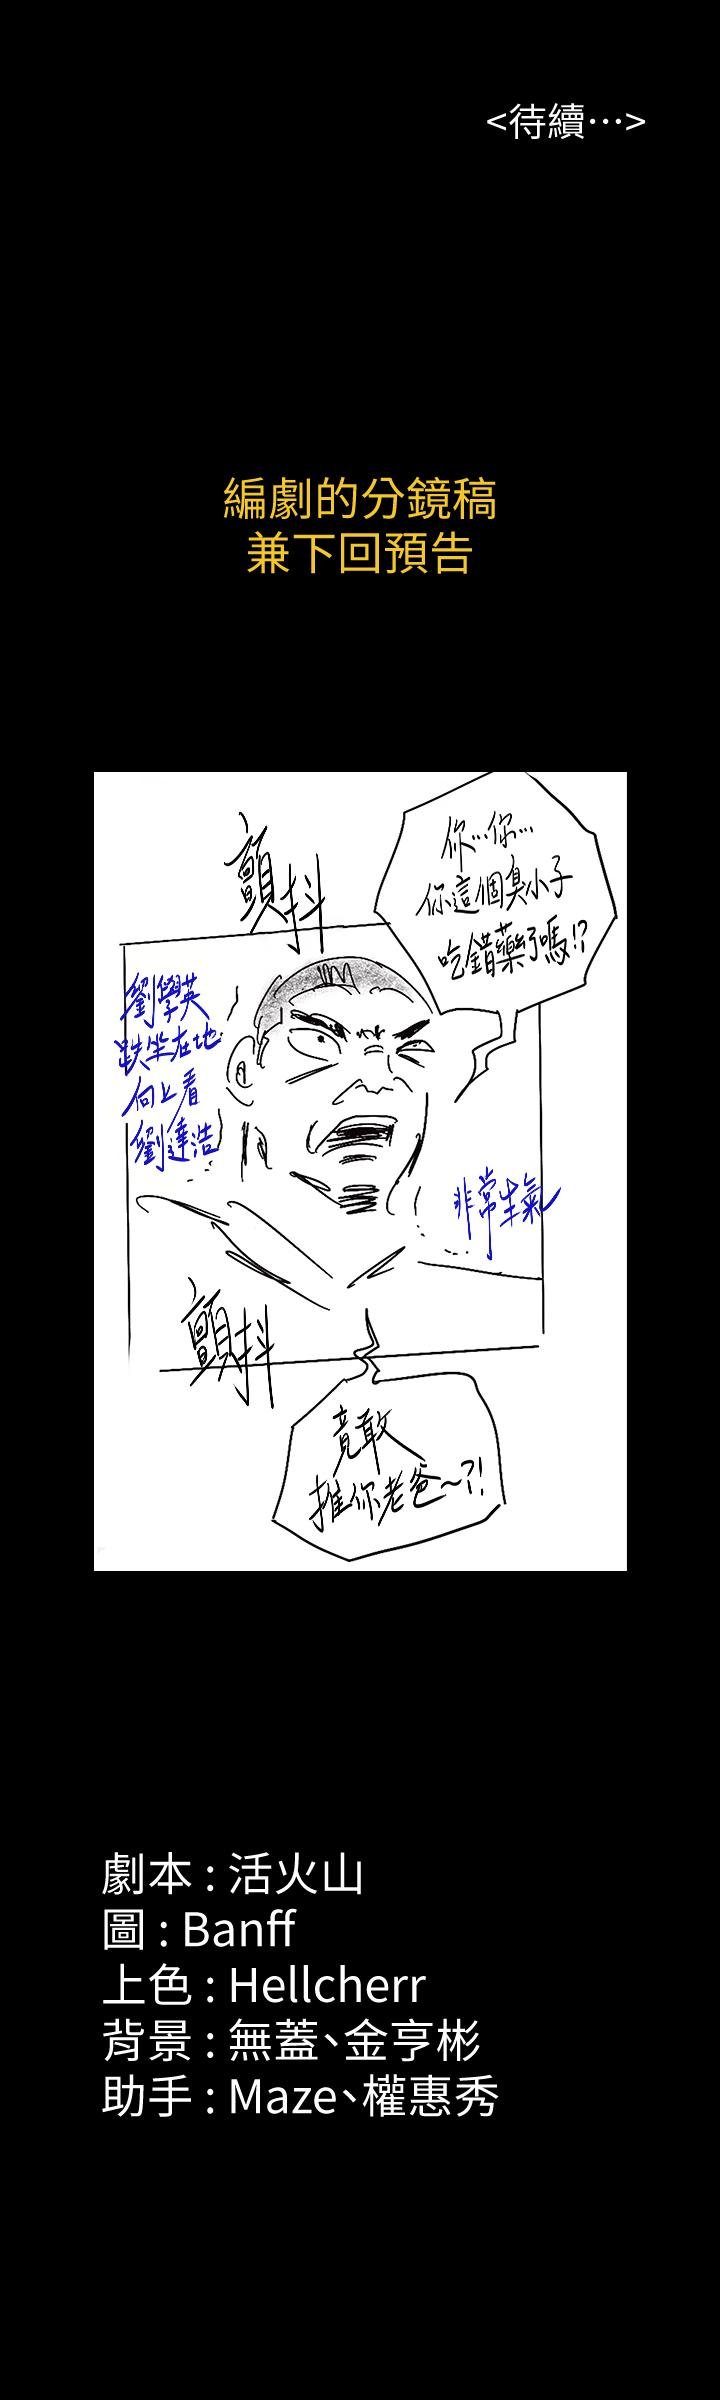 <待續…>
編劇的分鏡稿
兼下回預告
顫抖
你…你…
你這個臭小子
吃錯藥了嗎!?
劉學英
跌坐在地
向上看
劉達浩
非常生氣
顫抖
竟敢
推你老爸～?!
劇本 : 活火山
圖 : Banff
上色 : Hellcherr
背景 : 無蓋、金亨彬
助手 : Maze、權惠秀